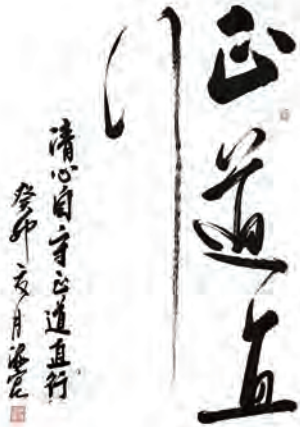 正道直
行
清心自守正道直行
癸卯夏月